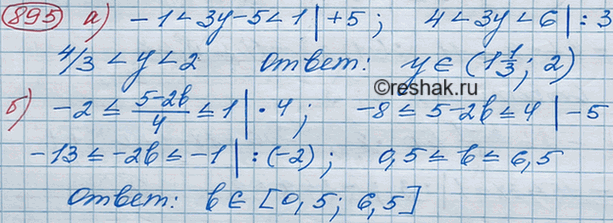 895 а) -1 < 3y-5 < 1 | +5 ; 4 < 3y < 6 | : 3
4/3 < y < 2 Ответ: y ∈ (1 1/3 ; 2)
©reshak.ru
б) -2 ≤ (5-2b)/4 ≤ 1 | · 4 ; -8 ≤ 5-2b ≤ 4 | -5
-13 ≤ -2b ≤ -1 | : (-2) ; 0,5 ≤ b ≤ 6,5
Ответ: b ∈ [0,5 ; 6,5]